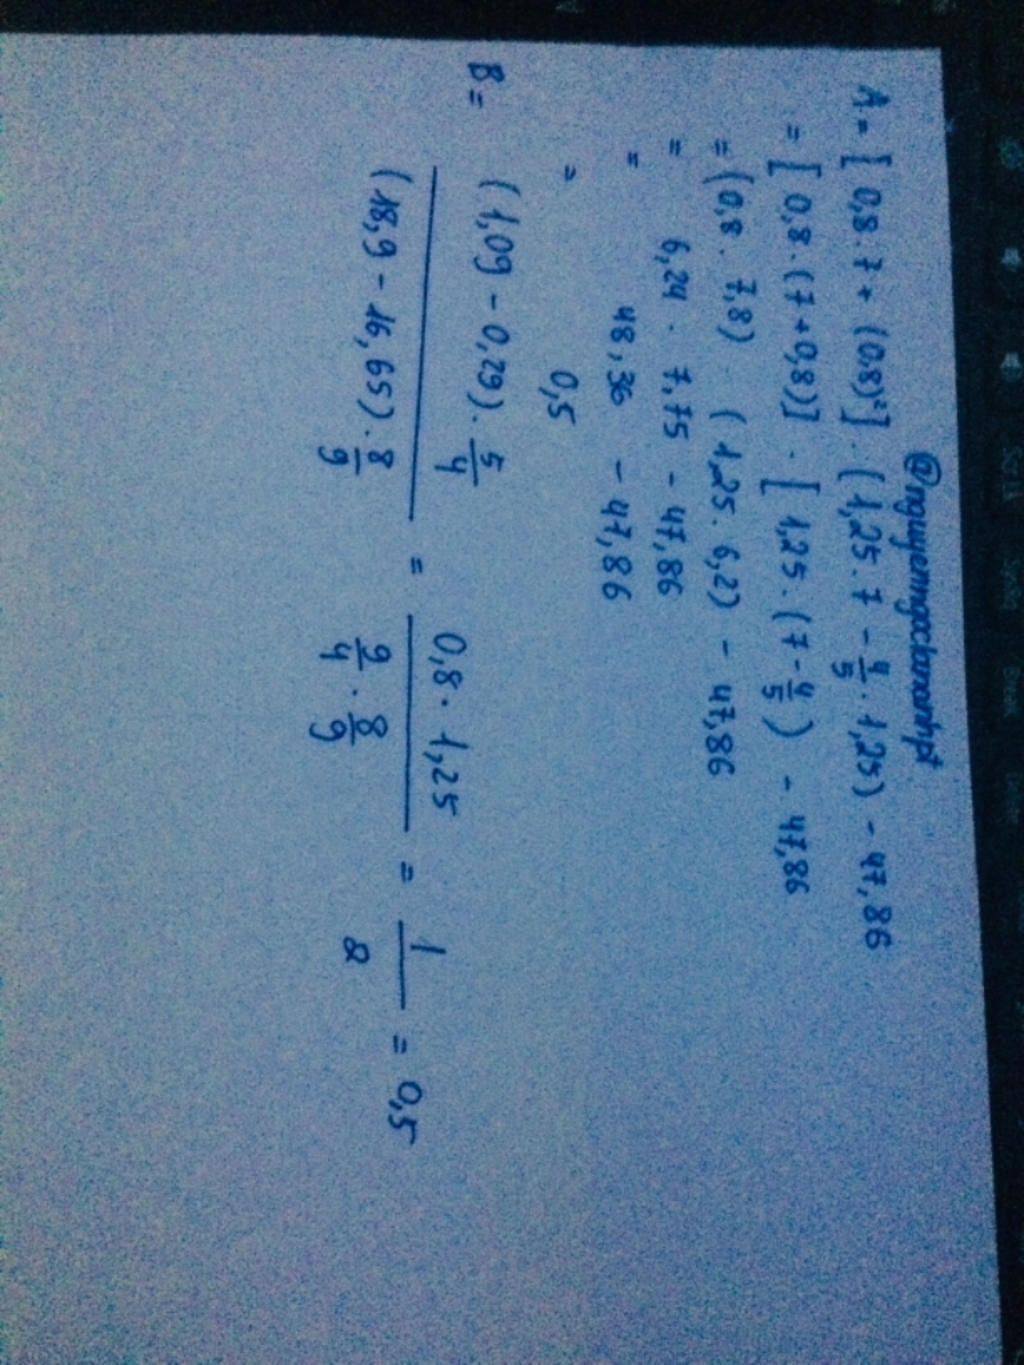 @nguyenngoctranhpt
A = [ 0,8 . 7 + (0,8)²] . ( 1,25 . 7 - 4/5 . 1,25) - 47,86
= [ 0,8 . (7 + 0,8)] . [ 1,25 . (7 - 4/5 ) - 47,86
= (0,8 . 7,8) ( 1,25 . 6,2) - 47,86
= 6,24 . 7,75 - 47,86
= 48,36 - 47,86
= 0,5
B = (1,09 - 0,29) . 5/4 / (18,9 - 16,65) . 8/9 = 0,8 . 1,25 / 9/4 . 8/9 = 1/2 = 0,5